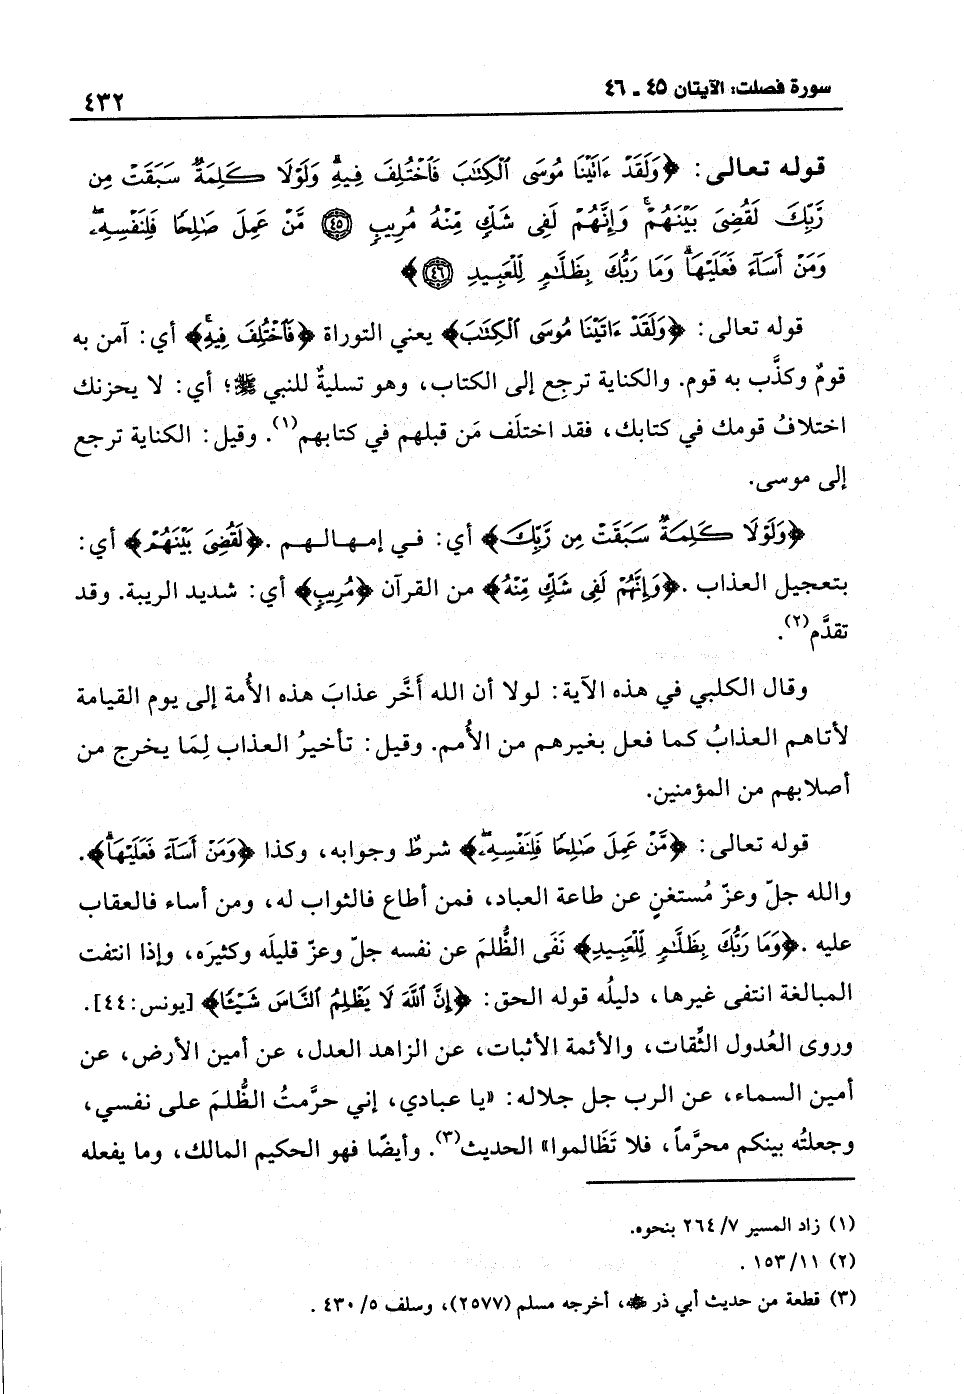 سورة فصلت: الآيتان ٤٥ ـ ٤٦
٤٣٢
قوله تعالى: ﴿وَلَقَدۡ ءَاتَيۡنَا مُوسَى ٱلۡكِتَٰبَ فَٱخۡتُلِفَ فِيهِۚ وَلَوۡلَا كَلِمَةٞ سَبَقَتۡ مِن
رَّبِّكَ لَقُضِيَ بَيۡنَهُمۡۚ وَإِنَّهُمۡ لَفِي شَكّٖ مِّنۡهُ مُرِيبٖ ٤٥ مَّنۡ عَمِلَ صَٰلِحٗا فَلِنَفۡسِهِۦۖ
وَمَنۡ أَسَآءَ فَعَلَيۡهَاۗ وَمَا رَبُّكَ بِظَلَّٰمٖ لِّلۡعَبِيدِ ٤٦﴾
قوله تعالى: ﴿وَلَقَدۡ ءَاتَيۡنَا مُوسَى ٱلۡكِتَٰبَ﴾ يعني التوراة ﴿فَٱخۡتُلِفَ فِيهِۚ﴾ أي: آمن به
قومٌ وكذَّب به قوم. والكناية ترجِع إلى الكتاب، وهو تسليةٌ للنبي ﷺ؛ أي: لا يحزنك
اختلافُ قومك في كتابك، فقد اختلَف مَن قبلهم في كتابهم(١). وقيل: الكناية ترجع
إلى موسى.
﴿وَلَوۡلَا كَلِمَةٞ سَبَقَتۡ مِن رَّبِّكَ﴾ أي: في إمهالهم. ﴿لَقُضِيَ بَيۡنَهُمۡ﴾ أي:
بتعجيل العذاب. ﴿وَإِنَّهُمۡ لَفِي شَكّٖ مِّنۡهُ﴾ من القرآن ﴿مُرِيبٖ﴾ أي: شديد الريبة. وقد
تقدَّم(٢).
وقال الكلبي في هذه الآية: لولا أن الله أخَّر عذابَ هذه الأُمة إلى يوم القيامة
لأتاهم العذابُ كما فعل بغيرهم من الأُمم. وقيل: تأخيرُ العذاب لِمَا يخرج من
أصلابهم من المؤمنين.
قوله تعالى: ﴿مَّنۡ عَمِلَ صَٰلِحٗا فَلِنَفۡسِهِۦۖ﴾ شرطٌ وجوابه، وكذا ﴿وَمَنۡ أَسَآءَ فَعَلَيۡهَاۗ﴾.
والله جلّ وعزّ مُستغنٍ عن طاعة العباد، فمن أطاع فالثواب له، ومن أساء فالعقاب
عليه. ﴿وَمَا رَبُّكَ بِظَلَّٰمٖ لِّلۡعَبِيدِ﴾ نَفَى الظُّلمَ عن نفسه جلّ وعزّ قليلَه وكثيرَه، وإذا انتفت
المبالغة انتفى غيرها، دليلُه قوله الحق: ﴿إِنَّ ٱللَّهَ لَا يَظۡلِمُ ٱلنَّاسَ شَيۡـٔٗا﴾ [يونس:٤٤].
وروى العُدول الثِّقات، والأئمة الأثبات، عن الزاهد العدل، عن أمين الأرض، عن
أمين السماء، عن الرب جل جلاله: «يا عبادي، إني حرَّمتُ الظُّلمَ على نفسي،
وجعلتُه بينكم محرَّماً، فلا تَظَالموا» الحديث(٣). وأيضًا فهو الحكيم المالك، وما يفعله
(١) زاد المسير ٢٦٤/٧ بنحوه.
(٢) ١٥٣/١١ .
(٣) قطعة من حديث أبي ذر ﷺ، أخرجه مسلم (٢٥٧٧)، وسلف ٤٣٠/٥ .